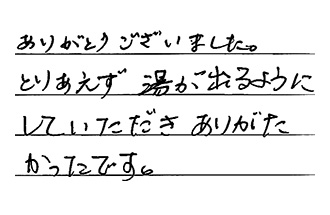 ありがとうございました。
とりあえず 湯が出るように
していただき ありがた
かったです。